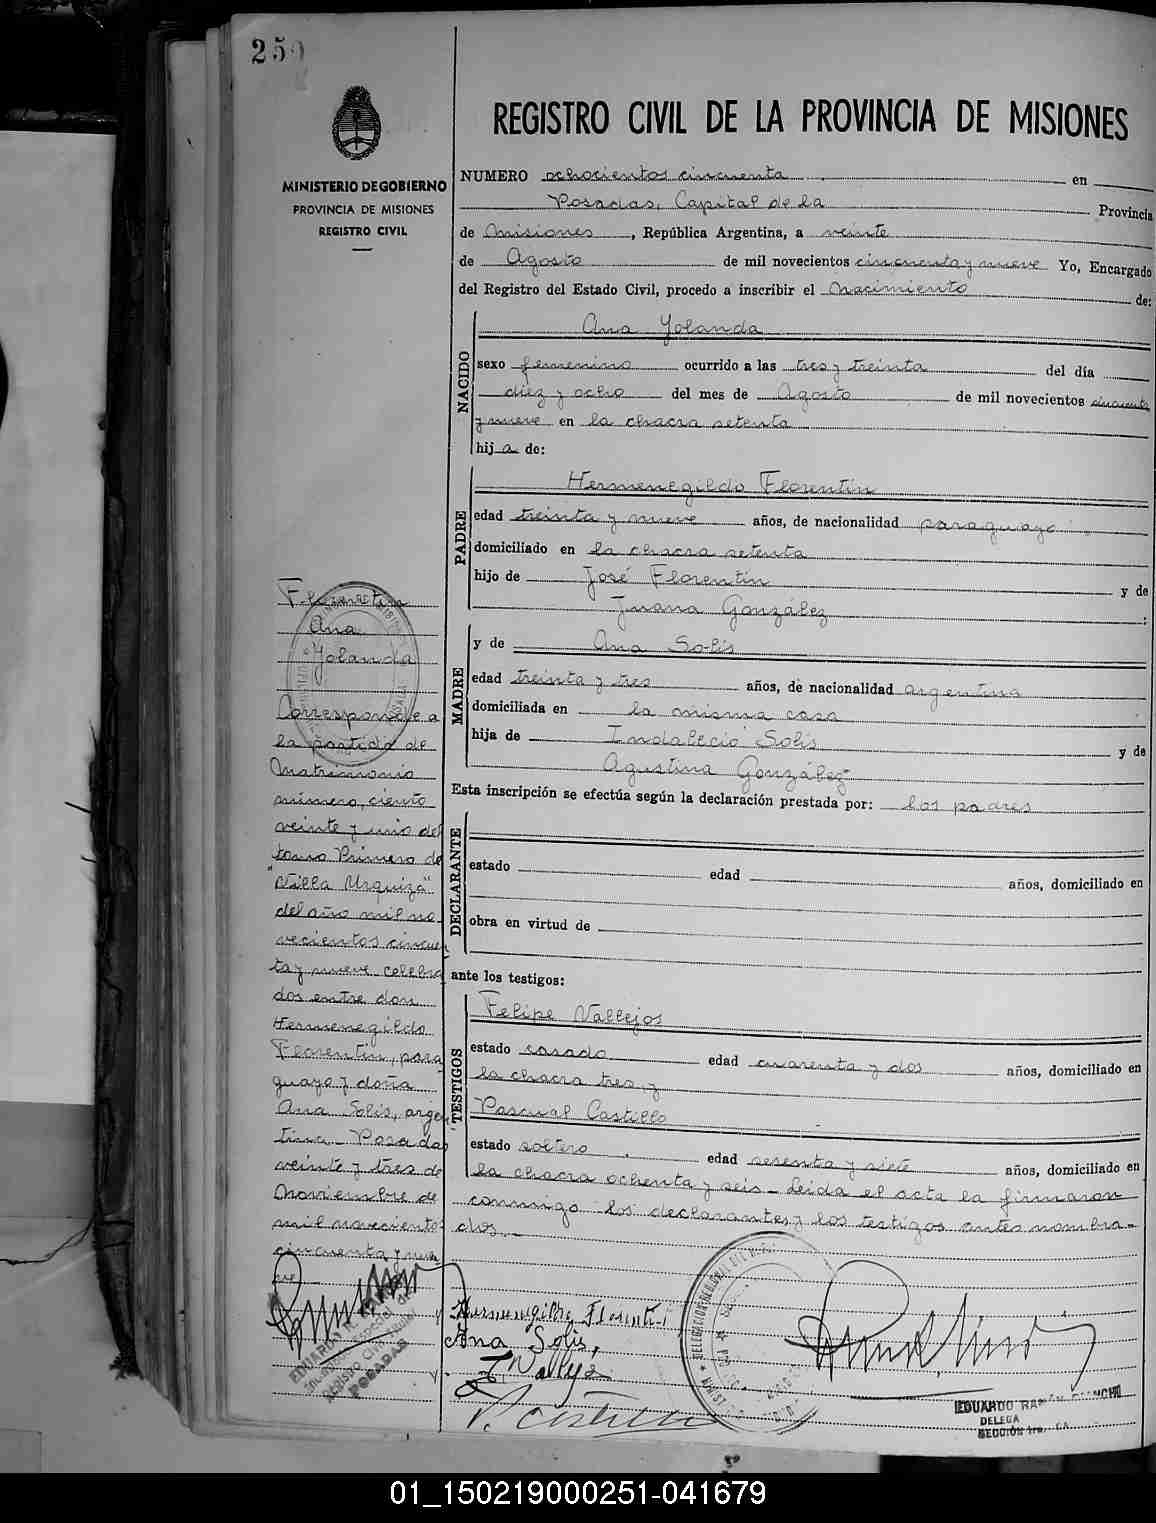 250
MINISTERIO DE GOBIERNO
PROVINCIA DE MISIONES
REGISTRO CIVIL
REGISTRO CIVIL DE LA PROVINCIA DE MISIONES
NUMERO ochocientos cincuenta en
Posadas, Capital de la Provincia
de Misiones, República Argentina, a veinte
de Agosto de mil novecientos cincuenta y nueve Yo, Encargado
del Registro del Estado Civil, procedo a inscribir el Nacimiento de:
NACIDO
Ana Yolanda
sexo femenino ocurrido a las tres y treinta del día
diez y ocho del mes de Agosto de mil novecientos cincuenta
y nueve en la chacra setenta
hija de:
PADRE
Hermenegildo Florentín
edad treinta y nueve años, de nacionalidad paraguayo
domiciliado en la chacra setenta
hijo de José Florentín y de
Juana González :
MADRE
y de Ana Solis
edad treinta y tres años, de nacionalidad argentina
domiciliada en la misma casa
hija de Indalecio Solis y de
Agustina González
Esta inscripción se efectúa según la declaración prestada por: los padres
DECLARANTE
estado edad años, domiciliado en
obra en virtud de
ante los testigos:
TESTIGOS
Felipe Vallejos
estado casado edad cuarenta y dos años, domiciliado en
la chacra tres, y
Pascual Castillo
estado soltero edad sesenta y siete años, domiciliado en
la chacra ochenta y seis - Leida el acta la firmaron
conmigo los declarantes y los testigos antes nombra-
dos. -
Florentín
Ana
Yolanda
Corresponde a
la partida de
Matrimonio
número, ciento
veinte y uno del
tomo Primero de
"Villa Urquiza"
del año mil no
vecientos cincuen
ta y nueve celebra
dos entre don
Hermenegildo
Florentín, para
guayo y doña
Ana Solis, argen
tina. Posadas
veinte y tres de
Noviembre de
mil novecientos
cincuenta y nue
ve
Hermenegildo Florentin
Ana Solis,
F. Vallejos
P. Castillo
EDUARDO
POSADAS
EDUARDO RAMÓN BIANCHI
DELEGA
SECCIÓN 1ra.
01_150219000251-041679